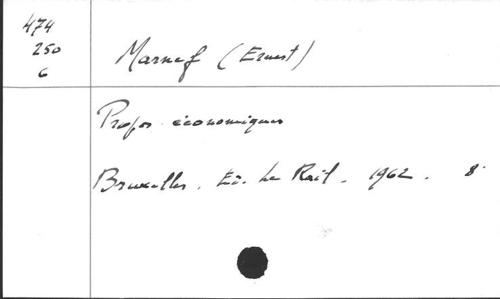 474
250
6
Marnef (Ernest)
Propos économiques
Bruxelles. Ed. Le Rail - 1962. 8°